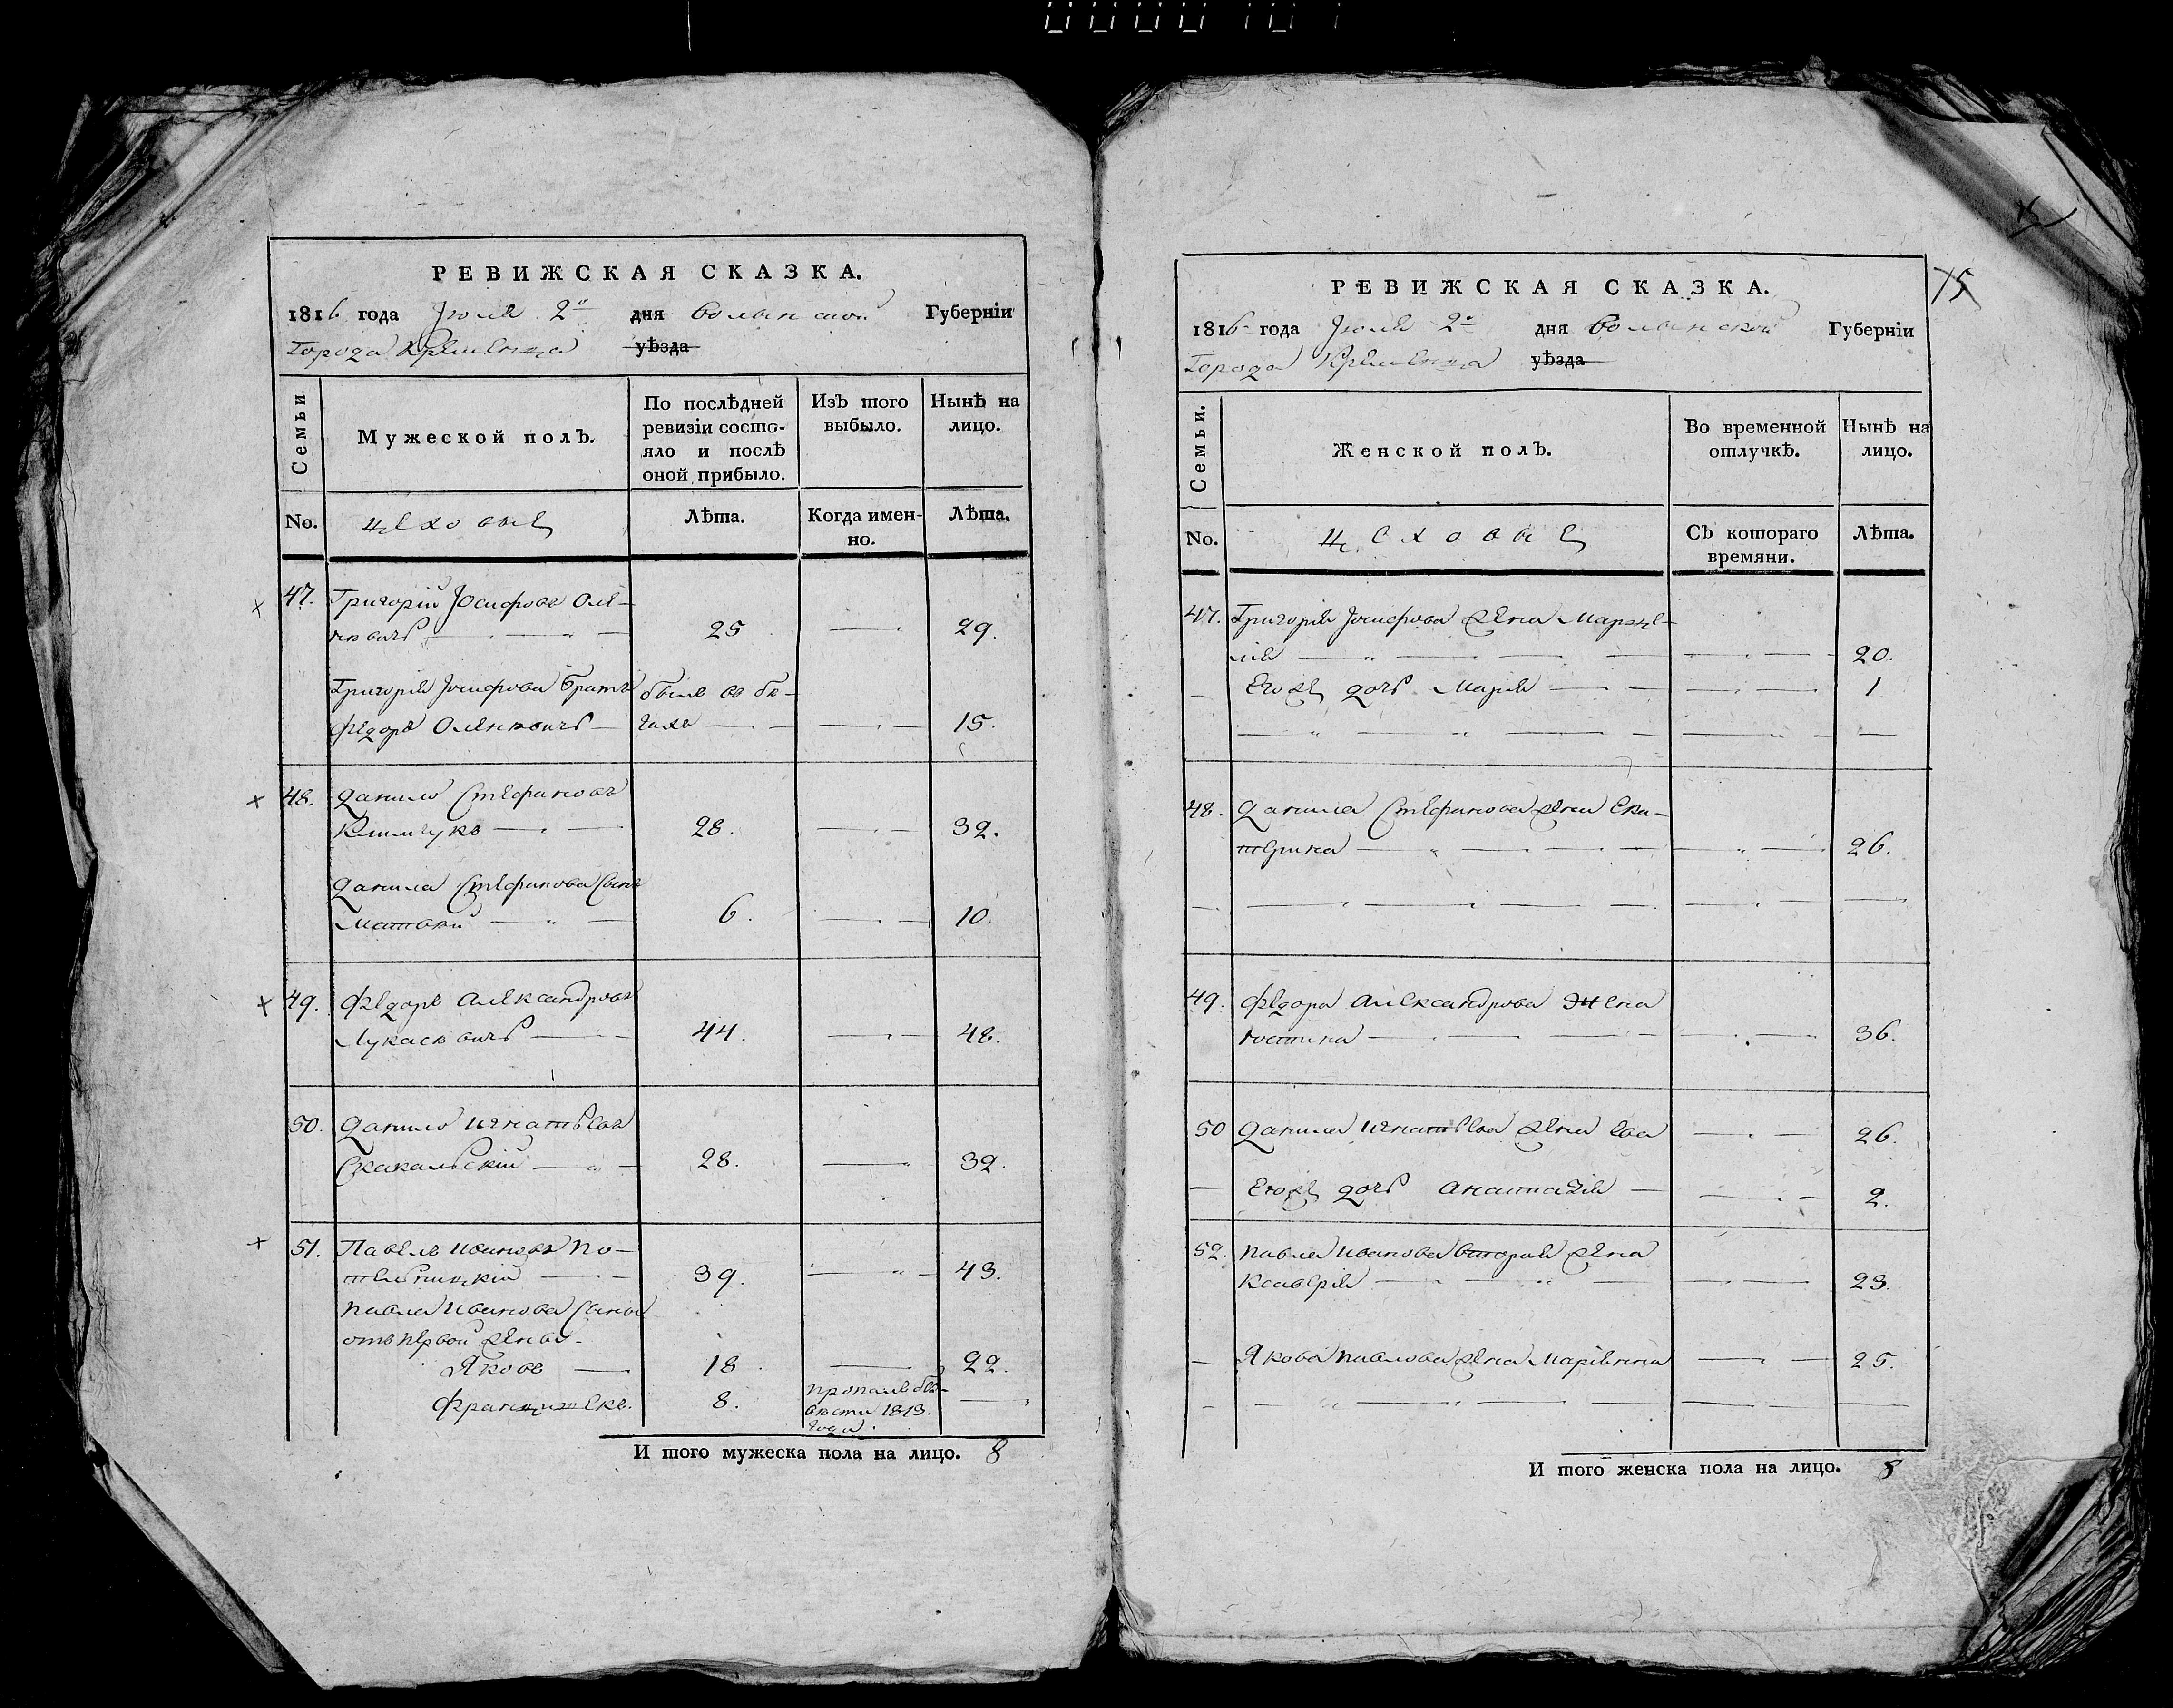 РЕВИЖСКАЯ СКАЗКА.
1816 года Іюля 2го дня Волынской Губерніи
Города Кременца уѣзда
Семьи
Мужеской полъ.
По послѣдней ревизіи состо-
яло и послѣ оной прибыло.
Изъ того выбыло.
Нынѣ на лицо.
No. цеховые Лѣта. Когда имен-
но. Лѣта.
47. Григорій Іосифовъ Оле-
нкевичъ 25 29.
Григорія Іосифова братъ былъ въ бѣ-
Федоръ Оленкевичъ гахъ 15.
48. Данило Стефановъ
Климчукъ 28. 32.
Данила Стефанова сынъ
Матвѣй 6. 10.
49. Федоръ Александровъ
Лукасевичъ 44. 48.
50. Данило Игнатьевъ
Скакальскій 28. 32.
51. Павелъ Ивановъ По-
тельницкій 39. 43.
Павла Иванова сыны
отъ первой жены
Яковъ 18 22.
Францишекъ. 8. пропалъ безъ-
вѣсти 1813.
года.
И того мужеска пола на лицо. 8
РЕВИЖСКАЯ СКАЗКА.
75
1816 года Іюля 2го дня Волынской Губерніи
Города Кременца уѣзда
Семьи.
Женской полъ.
Во временной отлучкѣ.
Нынѣ на лицо.
No. цеховые Съ котораго
времяни. Лѣта.
47. Григорія Іосифова жена Марце-
ля 20.
Егожъ дочь Марія 1.
48. Данила Стефанова жена Ека-
терина 26.
49. Федора Александрова жена
Юстина 36.
50 Данила Игнатьева жена Ева 26.
Егожъ дочь Анастазія 2.
52. Павла Иванова вторая жена
Ксаверія 23.
Якова Павлова жена Маріянна 25.
И того женска пола на лицо. 8